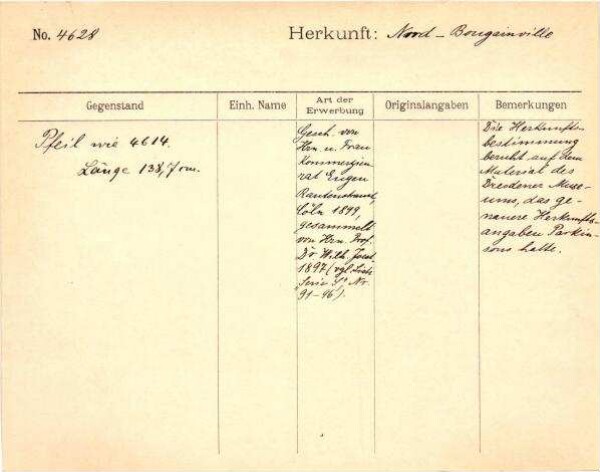 No. 4628
Herkunft: Nord-Bougainville
Gegenstand
Einh. Name
Art der
Erwerbung
Originalangaben
Bemerkungen
Pfeil wie 4614.
Länge 138,7 cm.
Gesch. von
Hrn u. Frau
Kommerzien
rat Eugen
Rautenstrauch,
Cöln 1899,
gesammelt
von Hrn. Prof.
Dr Wilh. Joest
1897 (vgl.
Serie Nr.
91-96).
Die Herkunfts-
bestimmung
beruht auf dem
Material des
Dresdener Muse-
ums, das ge-
nauere Herkunfts-
angaben Parkin-
sons hatte.